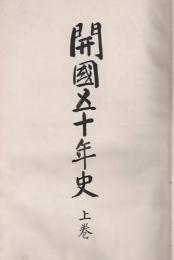 開國五十年史
上卷